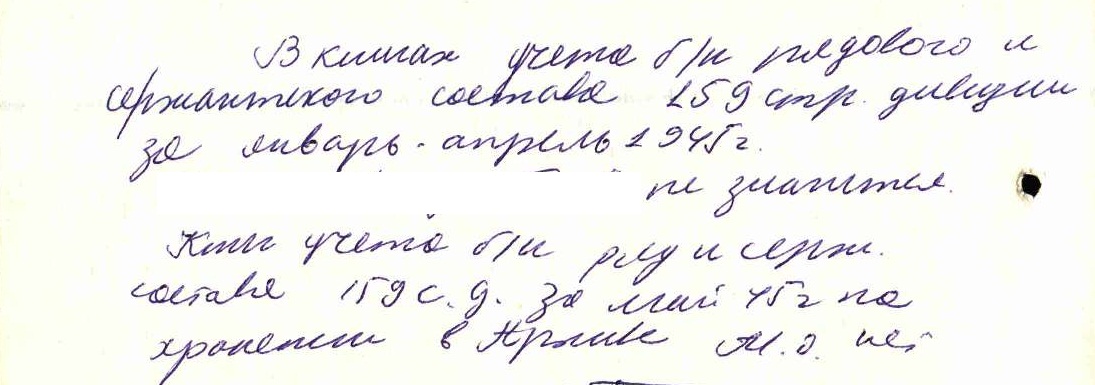 В книгах учета б/п рядового и
сержантского состава 159 стр. дивизии
за январь-апрель 1945г.
не значится.
Книг учета б/п ряд и серж.
состава 159 с.д. за май 45г на
хранении в Архиве М.О. нет